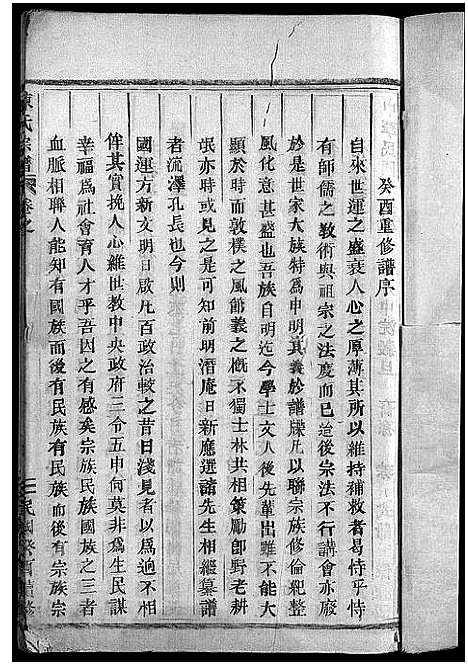 癸酉重修譜序
自來世運之盛衰人心之厚薄其所以維持補救者曷恃乎恃
有師儒之敎術與祖宗之法度而已迨後宗法不行講會亦廢
於是世家大族特爲申明其義於譜牒凡以聯宗族修倫紀整
風化意甚盛也吾族自明迄今學士文人後先輩出雖不能大
顯於時而敦樸之風節義之槪不獨士林共相策勵卽野老耕
氓亦時或可知前明潛庵日新應選諸先生相繼纂譜
者流澤孔長也今則
國運方新文明日啟凡百政治較之昔日淺見者以爲逈不相
侔其實挽人心維世敎中央政府三令五申何莫非爲生民謀
幸福爲社會育人才乎吾因之有感矣宗族民族國族之三者
血脈相聯人能知有國族而後有民族有民族而後有宗族宗
氏宗譜
卷之
民國癸酉續修